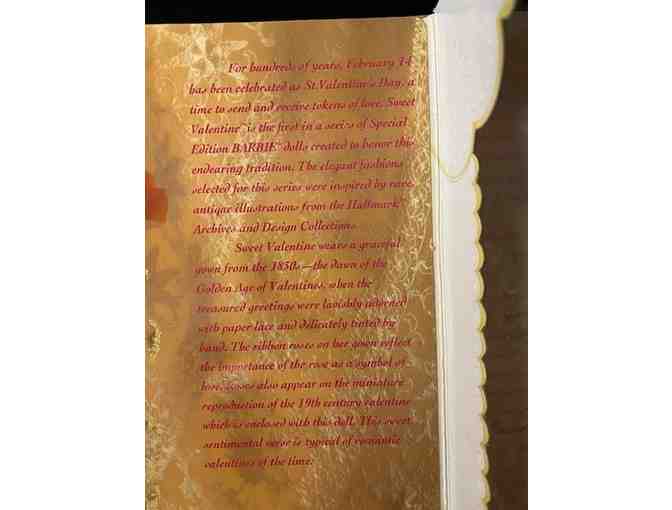 For hundreds of years, February 14
has been celebrated as St.Valentine's Day, a
time to send and receive tokens of love. Sweet
Valentine™ is the first in a series of Special
Edition BARBIE® dolls created to honor this
endearing tradition. The elegant fashions
selected for this series were inspired by rare,
antique illustrations from the Hallmark
Archives and Design Collections.
Sweet Valentine wears a graceful
gown from the 1850s—the dawn of the
Golden Age of Valentines, when the
treasured greetings were lavishly adorned
with paper lace and delicately tinted by
hand. The ribbon roses on her gown reflect
the importance of the rose as a symbol of
love. Roses also appear on the miniature
reproduction of the 19th century valentine
which is enclosed with this doll. This sweet
sentimental verse is typical of romantic
valentines of the time: